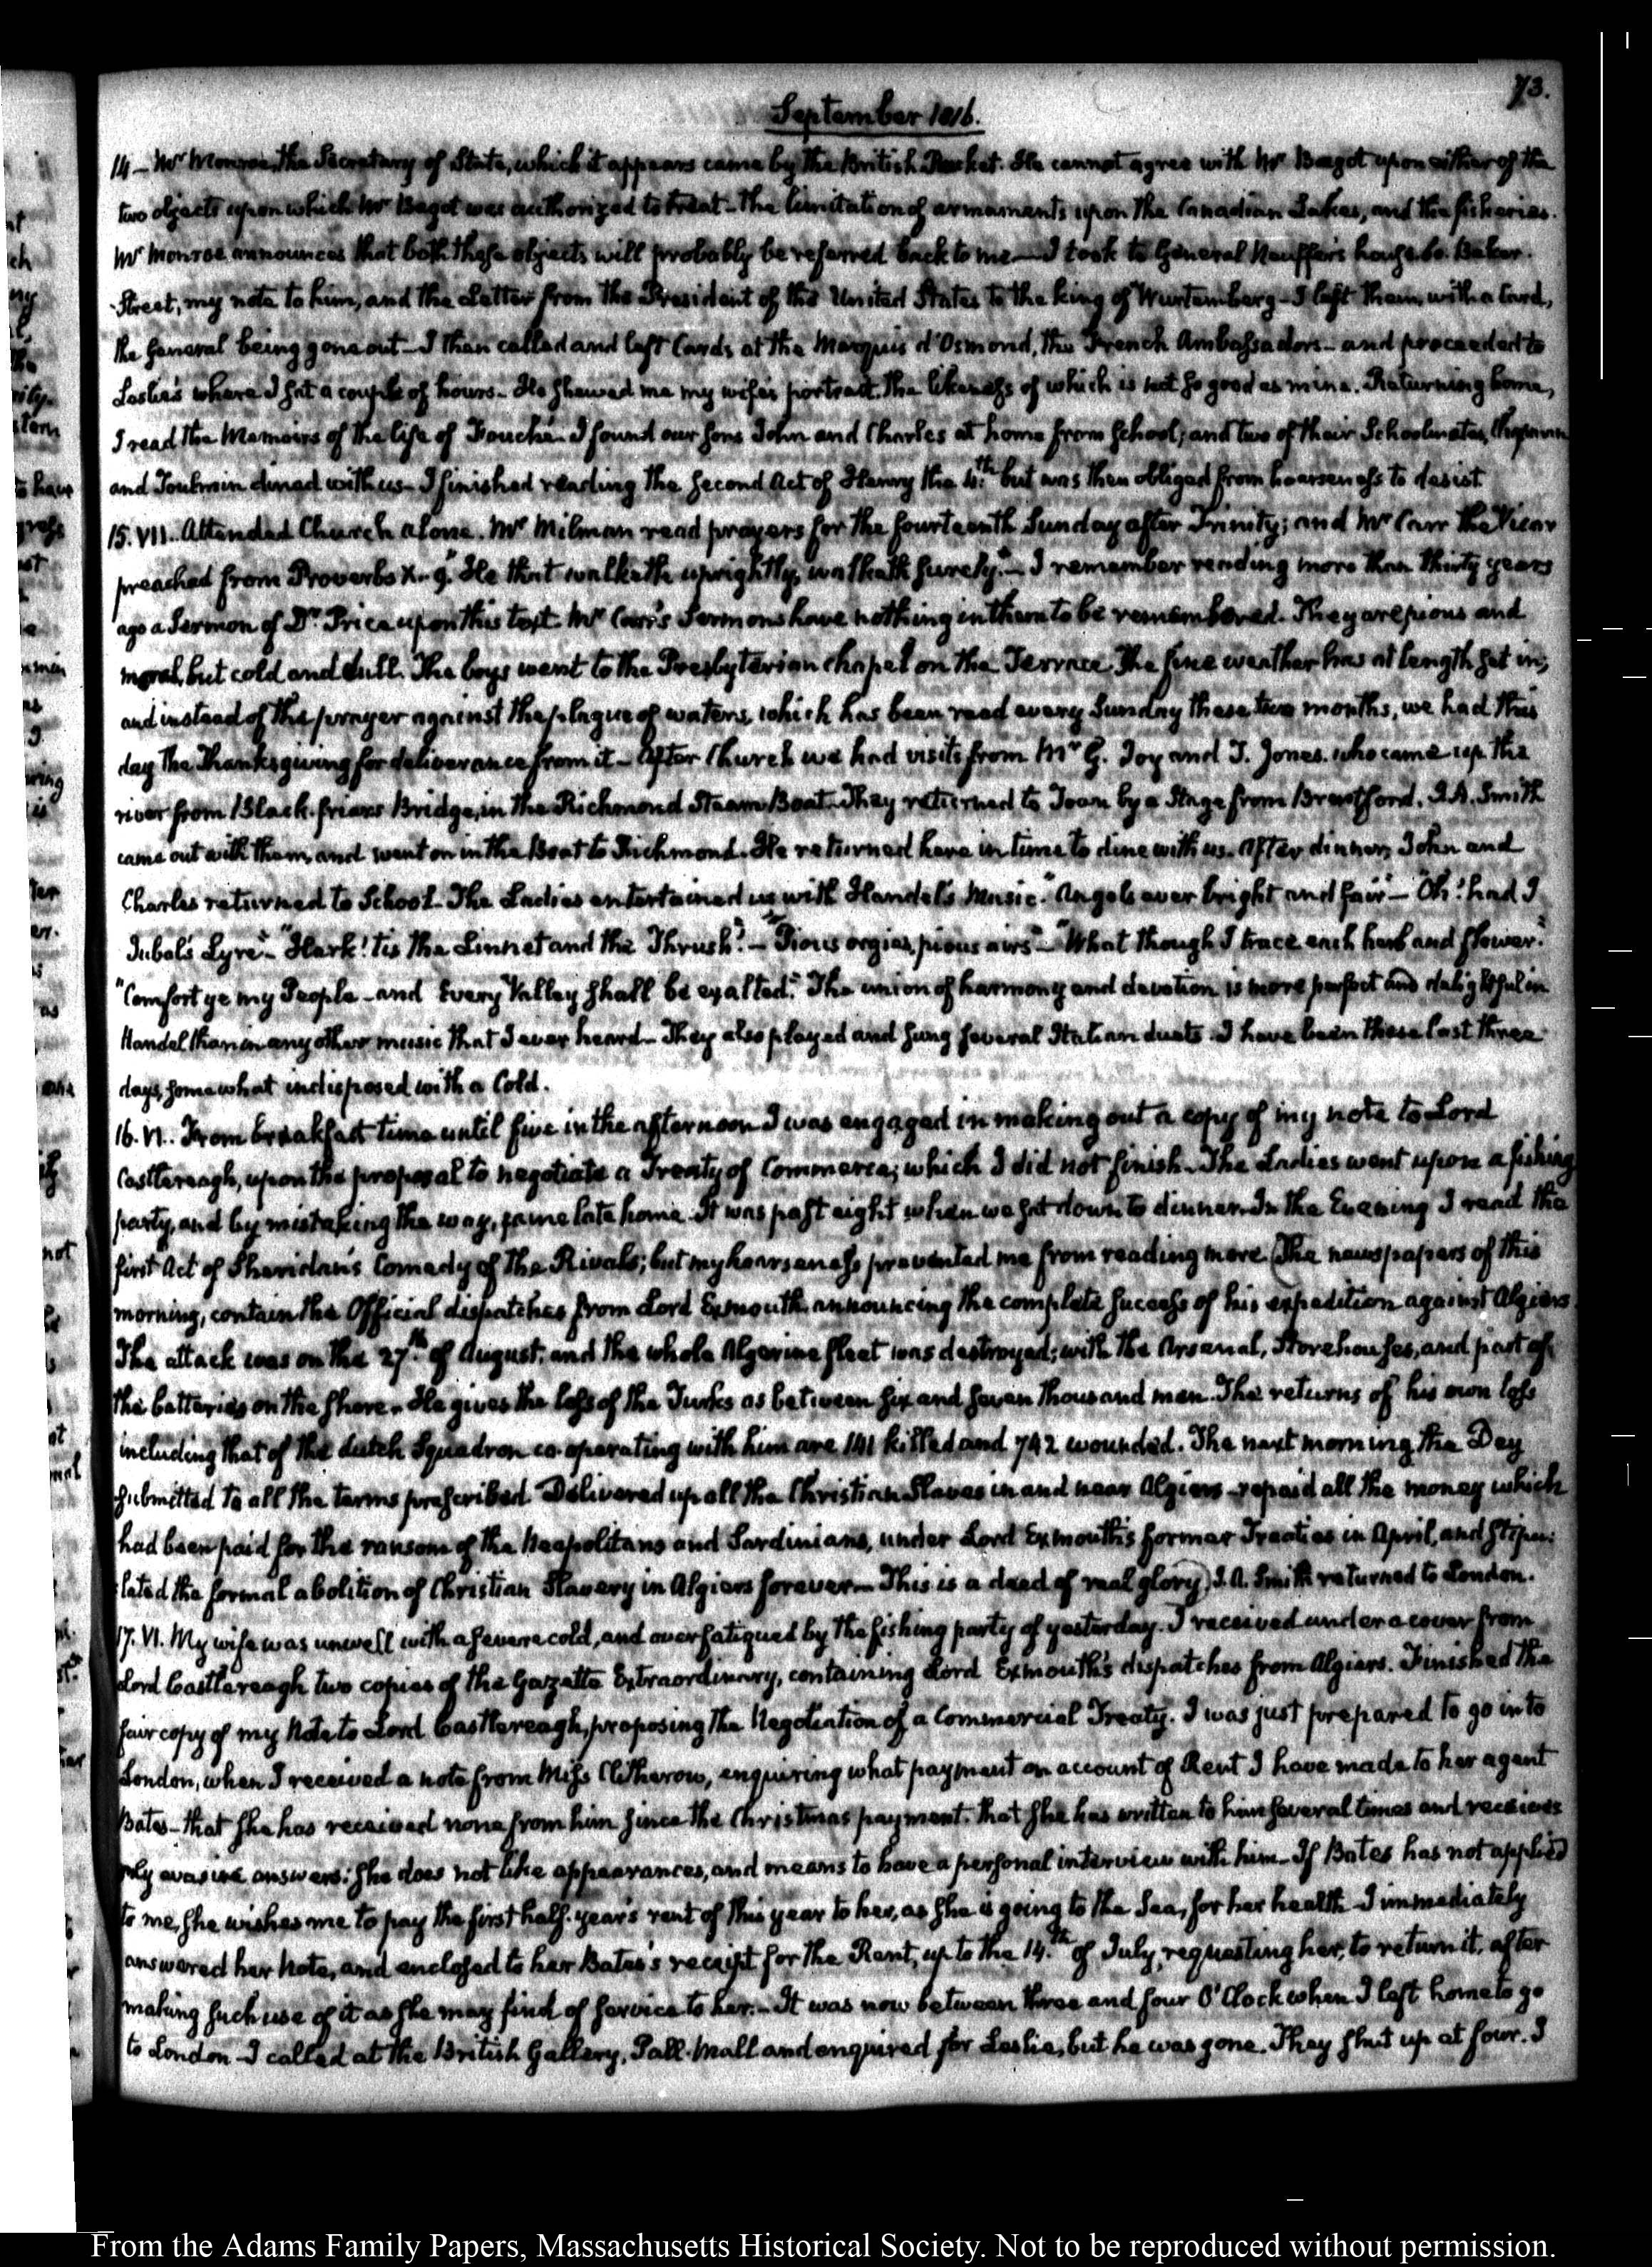 73.
September 1816.
14 – Mr Monroe, the Secretary of State, which it appears came by the British Packet. He cannot agree with Mr Bagot upon either of the
two objects upon which Mr Bagot was authorized to treat – The limitation of armaments upon the Canadian Lakes, and the fisheries.
Mr Monroe announces that both these objects will probably be referred back to me – I took to General Neuffer's house 60. Baker-
Street, my note to him, and the Letter from the President of the United States to the king of Wurtemberg – I left them, with a Card,
the General being gone out – I then called and left Cards at the Marquis d'Osmond, the French Ambassadors – and proceeded to
Leslie's where I sat a couple of hours – He shewed me my wife's portrait. The likeness of which is not so good as mine. Returning home,
I read the Memoirs of the life of Fouché. I found our Sons John and Charles at home from School; and two of their Schoolmates,
and Toulmin dined with us – I finished reading the second Act of Henry the 4th but was then obliged from hoarseness to desist
15. VII.. Attended Church alone. Mr Milman read prayers for the fourteenth Sunday after Trinity; and Mr Carr the Vicar
preached from Proverbs X. 9. "He that walketh uprightly, walketh surely." – I remember reading more than thirty years
ago a Sermon of Dr Price upon this text. Mr Carr's Sermons have nothing in them to be remembered. They are pious and
moral, but cold and dull. The boys went to the Presbyterian Chapel on the Terrace. The fine weather has at length set in;
and instead of the prayer against the plague of waters, which has been read every Sunday these two months, we had this
day the Thanksgiving for deliverance from it – After Church we had visits from Mr G. Joy and T. Jones. who came up the
river from Black-friars Bridge, in the Richmond Steam Boat. They returned to Town by a Stage from Brentford. J. A. Smith
came out with them, and went on in the Boat to Richmond. He returned here in time to dine with us. After dinner, John and
Charles returned to School. The Ladies entertained us with Handel's Music. "Angels ever bright and fair" – "Oh! had I
Jubal's Lyre" – "Hark! tis the Linnet and the Thrush." – "Pious orgies, pious airs" – "What though I trace each herb and flower."
"Comfort ye my People – and Every Valley shall be exalted." The union of harmony and devotion is more perfect and delightful in
Handel than in any other music that I ever heard – They also played and sung several Italian duets. I have been these last three
days, somewhat indisposed with a Cold.
16. VI.. From breakfast time until five in the afternoon I was engaged in making out a copy of my note to Lord
Castlereagh, upon the proposal to negotiate a Treaty of Commerce; which I did not finish. The Ladies went upon a fishing
party, and by mistaking the way, came late home. It was past eight when we sat down to dinner. In the Evening I read the
first Act of Sheridan's Comedy of the Rivals; but my hoarseness prevented me from reading more. (The newspapers of this
morning, contain the Official dispatches from Lord Exmouth, announcing the complete success of his expedition against Algiers
The attack was on the 27th of August: and the whole Algerine fleet was destroyed; with the Arsenal, Storehouses, and part of
the batteries on the shore. He gives the loss of the Turks as between six and seven thousand men. The returns of his own loss
including that of the dutch Squadron co-operating with him are 141 killed and 742 wounded. The next morning the Dey
submitted to all the terms prescribed. Delivered up all the Christian Slaves in and near Algiers – repaid all the money which
had been paid for the ransom of the Neapolitans and Sardinians, under Lord Exmouth's former Treaties in April, and stipu-
lated the formal abolition of Christian Slavery in Algiers forever – This is a deed of real glory) J. A. Smith returned to London.
17. VI. My wife was unwell with a severe cold, and over fatigued by the fishing party of yesterday. I received under a cover from
Lord Castlereagh two copies of the Gazette Extraordinary, containing Lord Exmouth's dispatches from Algiers. Finished the
fair copy of my Note to Lord Castlereagh, proposing the Negotiation of a Commercial Treaty. I was just prepared to go into
London, when I received a note from Miss Clitherow, enquiring what payment on account of Rent I have made to her agent
Bates – that she has received none from him since the Christmas payment. that she has written to him several times and receives
only evasive answers: she does not like appearances, and means to have a personal interview with him – If Bates has not applied
to me, she wishes me to pay the first half-year's rent of this year to her, as she is going to the Sea, for her health – I immediately
answered her Note, and enclosed to her Bates's receipt for the Rent, up to the 14th of July, requesting her, to return it, after
making such use of it as she may find of service to her. – It was now between three and four O'Clock when I left home to go
to London – I called at the British Gallery, Pall-Mall and enquired for Leslie, but he was gone. They shut up at four. I
From the Adams Family Papers, Massachusetts Historical Society. Not to be reproduced without permission.